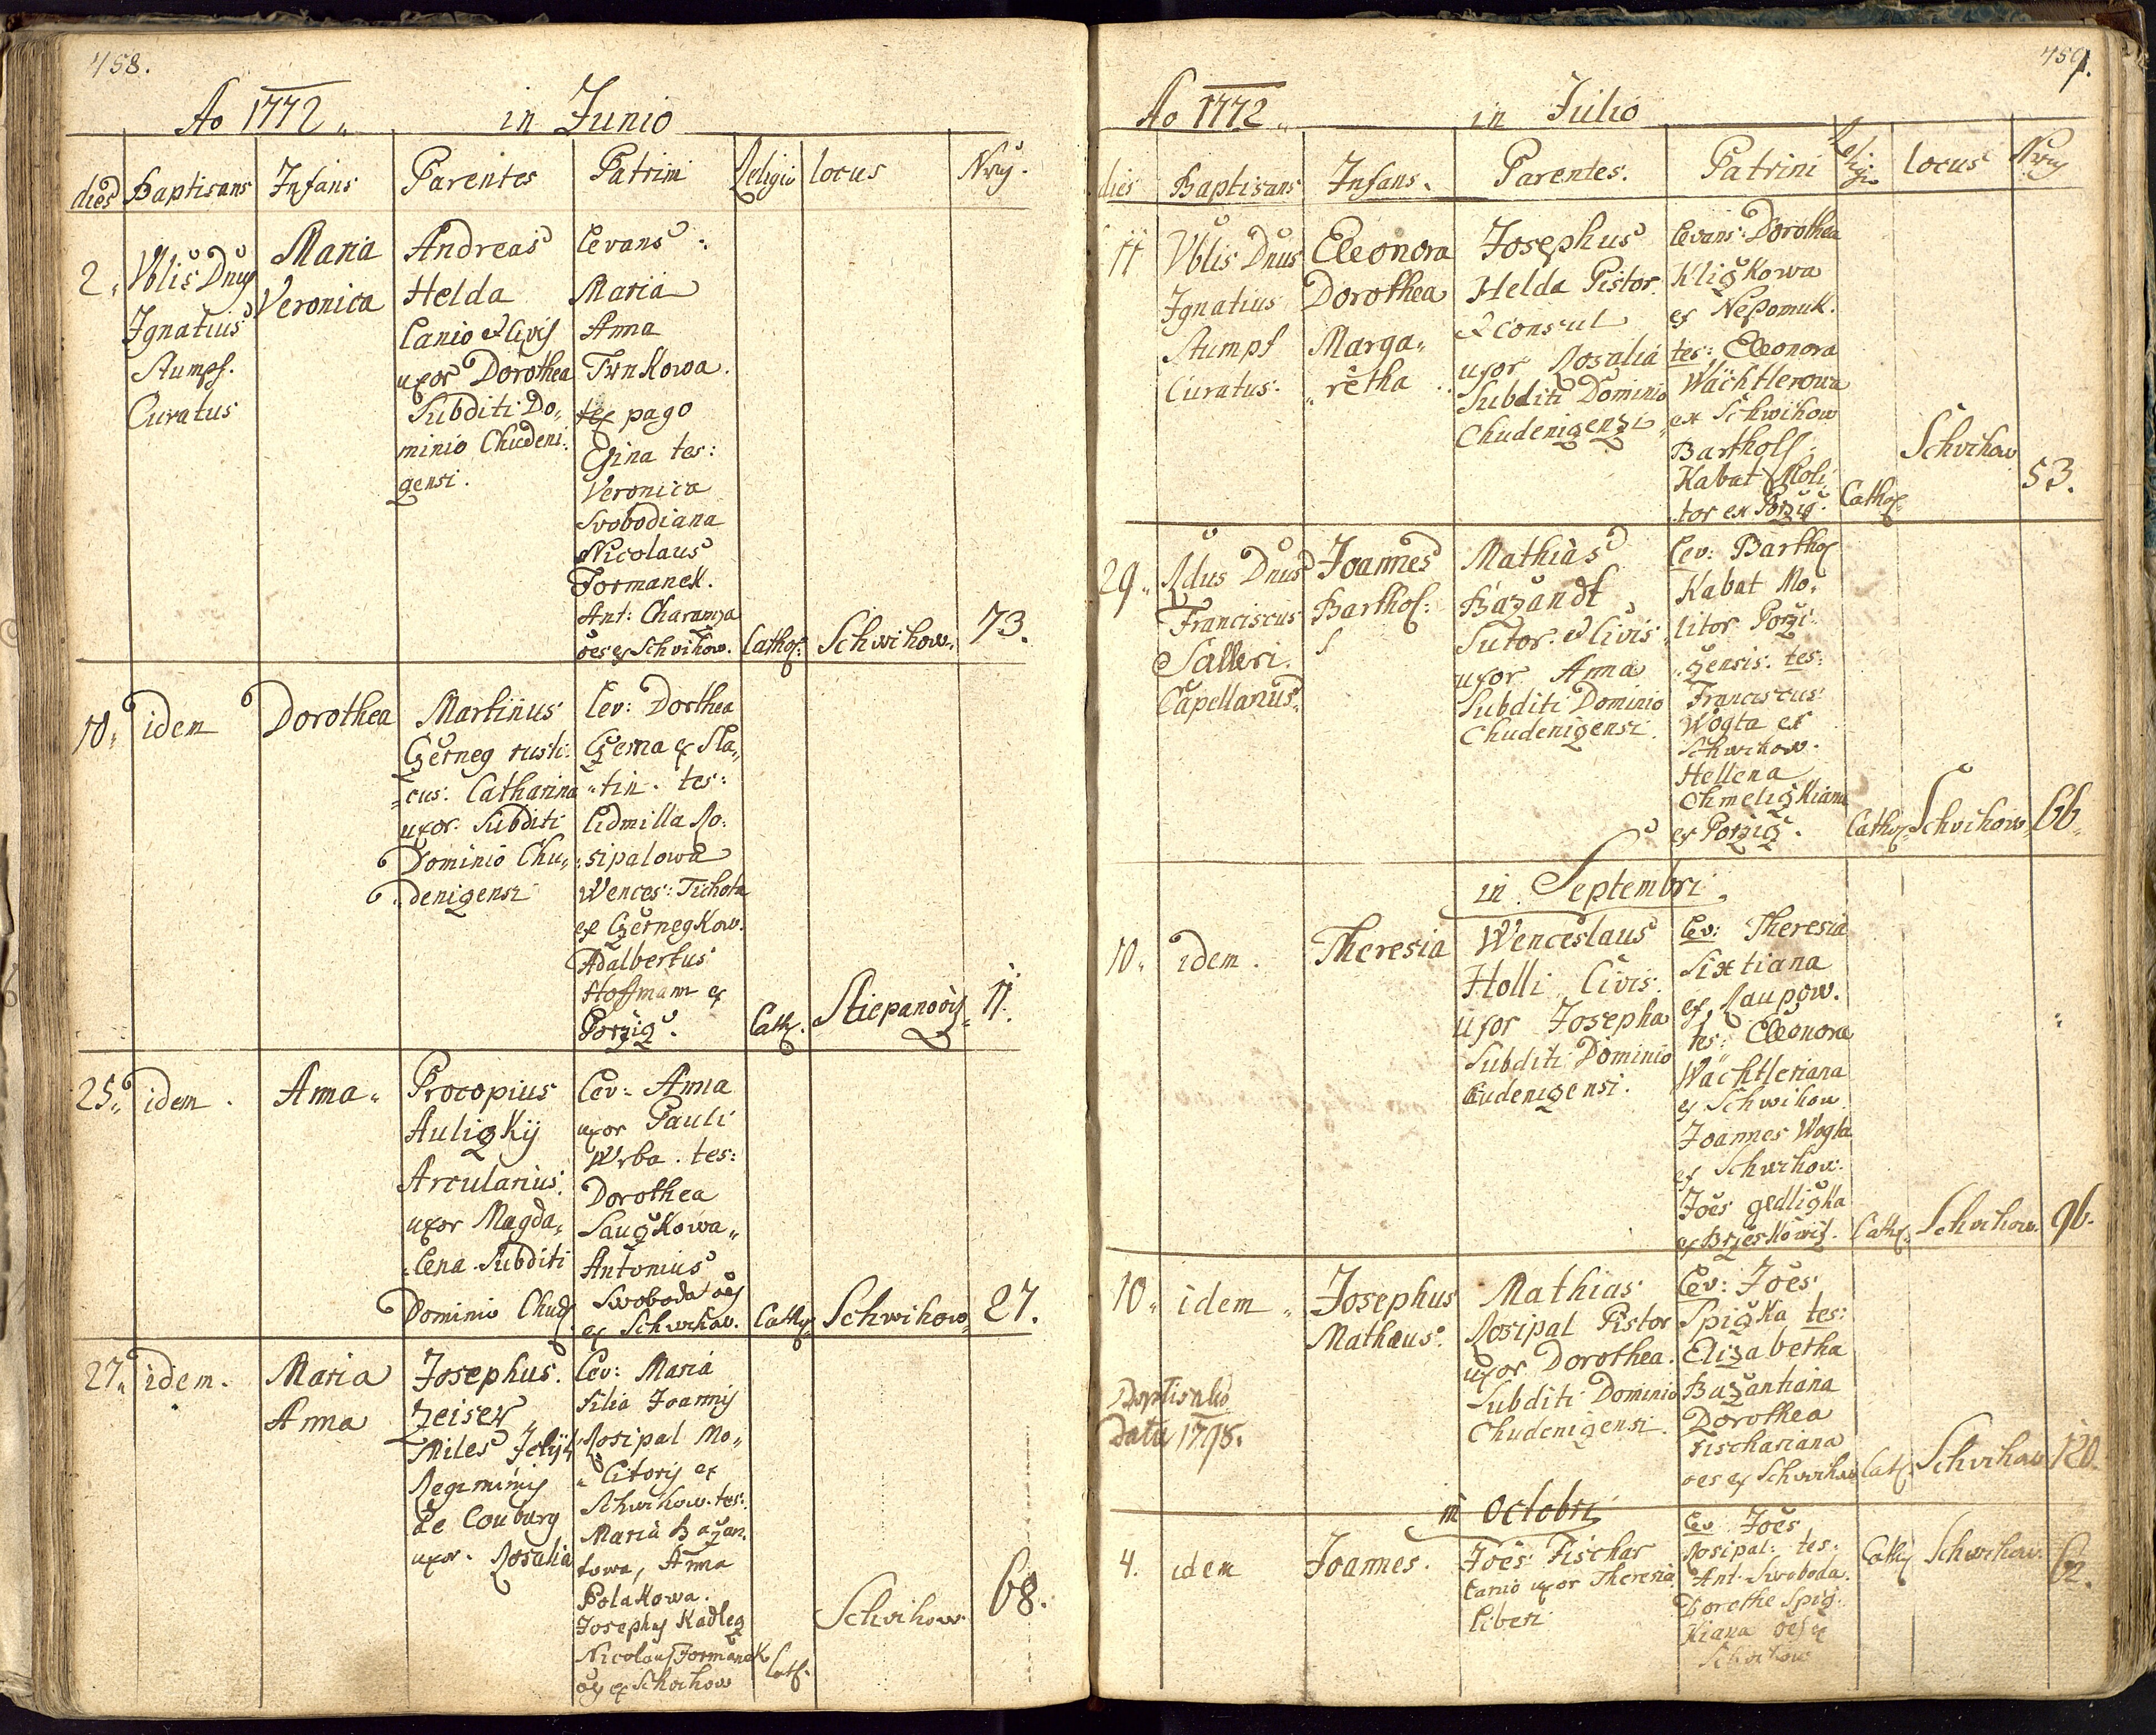 458.
Ao 1772 in Junio
dies Baptisans Infans Parentes Patrini Religio locus Nrus.
2. Vblis Dnus
Ignatius
Stumpf.
Curatus
Maria
Veronica
Andreas
Helda
Lanio et Civis
uxor Dorothea
Subditi Do„
minio Chudeni:
zensi.
Levans:
Maria
Anna
pago
tes:
Veronica
Svobodiana
Nicolaus
Formanek.
Ant: Charamza
oes ex Schvihow.
Cathol: Schwihow. 73.
10. idem Dorothea
Martinus
Czerneg rusti:
cus: Catharina
uxor. Subditi
Dominio Chu„
denizensi
Lev: Dorthea
Czerna ex Sla„
„tin. tes:
Lidmilla Ro:
„sipalowa
Wences: Tichota
ex Czernegkow.
Adalbertus
Hoffmann ex
Porziz.
Cath. Stiepanoviz 11.
25. idem. Anna„
Procopius
Aulizkij
Arcularius.
uxor Magda„
„lena. Subditi
Dominio Chud.
Lev: Anna
uxor Pauli
Wrba. tes:
Dorothea
Sauzkowa„
Antonius
Swoboda oes
ex Schwihov.
Cath. Schwihow. 27.
27. idem. Maria
Anna
Josephus.
Zeiser
Miles
Regiminis
de Couburg
uxor. Rosalia
Lev: Maria
filia Joannis
Rosipal Mo„
„litoris ex
Schwihow. tes:
Maria Bazan„
towa, Anna
Polakowa.
Josephus Kadlez
Nicolaus Formanek
oes ex Schvihow
Cath. Schvihow 68.
459.
Ao 1772 in Julio
dies Baptisans Infans. Parentes. Patrini Religio locus Nrus
11 Vblis Dnus
Ignatius
Stumpf
Curatus.
Eleonora
Dorothea
Marga„
„retha
Josephus
Helda Pistor
et Consul
uxor Rosalia
Subditi Dominio
Chudenizensi
Levans: Dorothea
Klizkowa
ex Nepomuk.
tes: Eleonora
Wächtlerowa
ex Schwihow
Barthol:
Kabat Moli„
tor ex Porziz.
Cathol. Schvihow 53.
29. Rdus Dnus
Franciscus
Salleri.
Capellanus.
Joannes
Barthol:
Mathias
Bazandt
Sutor. et Civis
uxor Anna
Subditi Dominio
Chudenizensi.
Lev: Barthol
Kabat Mo„
litor Porzi„
„zensis. tes:
Franciscus
Wogta ex
Schwihow.
Hellena
Chmelizkiana
ex Porziz.
Cathol. Schvihow 66.
in Septembri.
10. idem. Theresia
Wenceslaus
Holli Civis.
uxor Josepha
Subditi Dominio
Cudenizensi.
Lev: Theresia
Sixtiana
ex Raupow.
tes: Eleonora
Wächtleriana
ex Schwihow
Joannes Wogta
ex Schwihow.
Joes gedlizka
ex Brzeskowiz.
Cath. Schvihow. 96.
10. idem. Josephus
Mathæus.
Baptisalis
Data 1798.
Mathias
Rosipal Pistor
uxor Dorothea.
Subditi Dominio
Chudenizensi.
Lev: Joes
Spizka tes:
Elizabetha
Buzantiana
Dorothea
Fischariana
oes ex Schwihow
Cath. Schvihow 120.
in Octobri
4. idem Joannes.
Joes Fischar
Lanio uxor Theresia
Liberi
Lev Joes
Rosipal: tes:
Ant. Swoboda.
Dorothe Spiz„
kiana oes ex
Schvihow
Cath. Schwihow. 62.